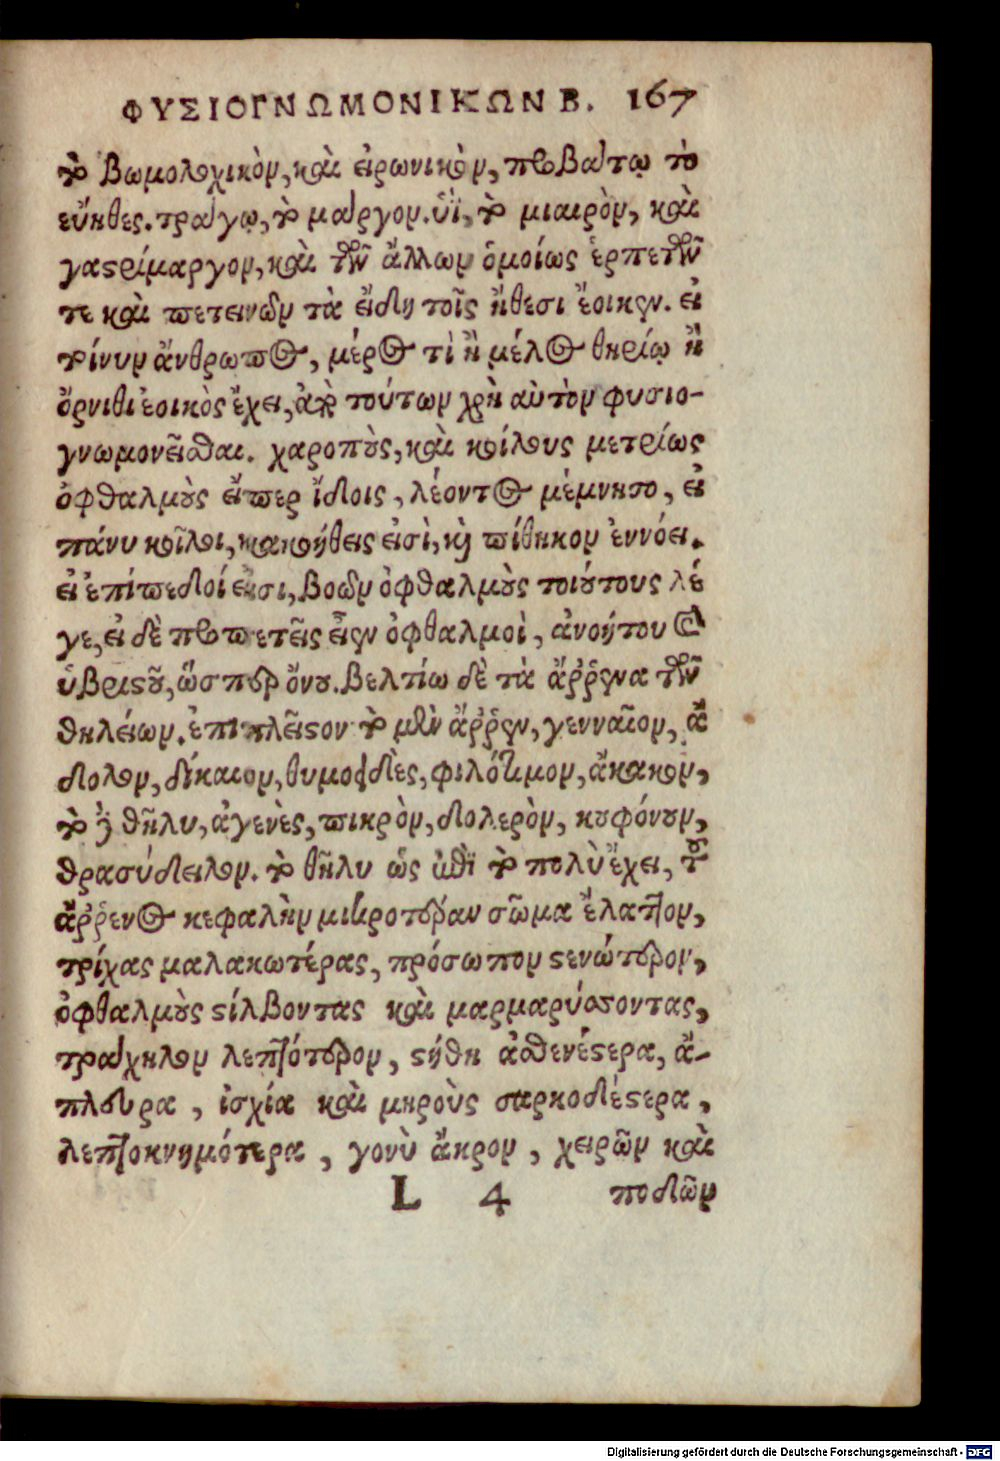 ΦΥΣΙΟΓΝΩΜΟΝΙΚΩΝ Β. 167
τὸ βωμολοχικὸν, καὶ εἰρωνικὸν, προβάτῳ τὸ
εὔηθες. τράγῳ, τὸ μάργον. ὑῒ, τὸ μιαιρὸν, καὶ
γαστρίμαργον, καὶ τῶν ἄλλων ὁμοίως ἑρπετῶν
τε καὶ πετεινῶν τὰ εἴδη τοῖς ἤθεσι ἔοικεν. εἰ
τοίνυν ἄνθρωπος, μέρος τὶ ἢ μέλος θηρίῳ ἢ
ὄρνιθι ἐοικὸς ἔχει, ἀπὸ τούτων χρὴ αὐτὸν φυσιο-
γνωμονεῖσθαι. χαροποὺς, καὶ κοίλους μετρίως
ὀφθαλμοὺς εἴπερ ἴδοις, λέοντος μέμνησο, εἰ
πάνυ κοῖλοι, κακοήθεις εἰσὶ, καὶ πίθηκον ἐννόει.
εἰ ἐπίπεδοί εἰσι, βοῶν ὀφθαλμοὺς τοιούτους λέ
γε, εἰ δὲ προπετεῖς εἶεν ὀφθαλμοὶ, ἀνοήτου καὶ
ὑβριστοῦ, ὥσπερ ὄνου. βελτίω δὲ τὰ ἄῤῥενα τῶν
θηλείων. ἐπιπλεῖστον τὸ μὲν ἄῤῥεν, γενναῖον, ἄ
δολον, δίκαιον, θυμοειδὲς, φιλότιμον, ἄκακον,
τὸ δὲ θῆλυ, ἀγενὲς, πικρὸν, δολερὸν, κουφόνουν,
θρασύδειλον. τὸ θῆλυ ὡς ἐπὶ τὸ πολὺ ἔχει, τοῦ
ἄῤῥενος κεφαλὴν μικροτέραν σῶμα ἔλαττον,
τρίχας μαλακωτέρας, πρόσωπον στενώτερον,
ὀφθαλμοὺς στίλβοντας καὶ μαρμαρύσσοντας,
τράχηλον λεπτότερον, στήθη ἀσθενέστερα, ἄ-
πλευρα, ἰσχία καὶ μηροὺς σαρκοδέστερα,
λεπτοκνημότερα, γονὺ ἄκρον, χειρῶν καὶ
L 4 ποδῶν
Digitalisierung gefördert durch die Deutsche Forschungsgemeinschaft - DFG